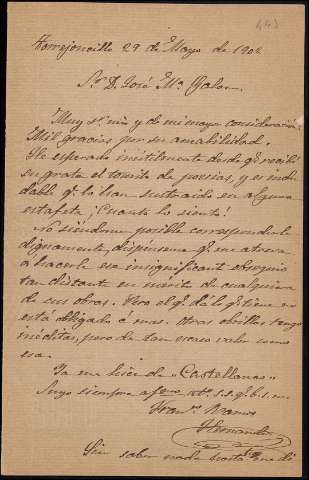 443
Torrejoncillo 29 de Mayo de 1902
Sr. D. José Mª Galan
Muy sr. mio y de mi mayor consideración:
Mil gracias por su amabilidad.
He esperado inutilmente desde qe. recibí
su grata el tomito de poesias, y es indu-
dable qe. lo han sustraido en alguna
estafeta ¡Cuanto lo siento!
No siéndome posible corresponderle
dignamente, dispénseme qe. me atreva
á hacerle ese insignificante obsequio
tan distante en merito de cualquiera
de sus obras. Pero el qe. dá lo qe. tiene no
está obligado á mas. Otras obrillas tengo
inéditas, pero de tan poco valor como
esa.
Ya me hice de "Castellanas"
Suyo siempre afmo. st. s. s. q. b. s. m.
Franco. Ramos
Hernandez
Sin saber nada hasta